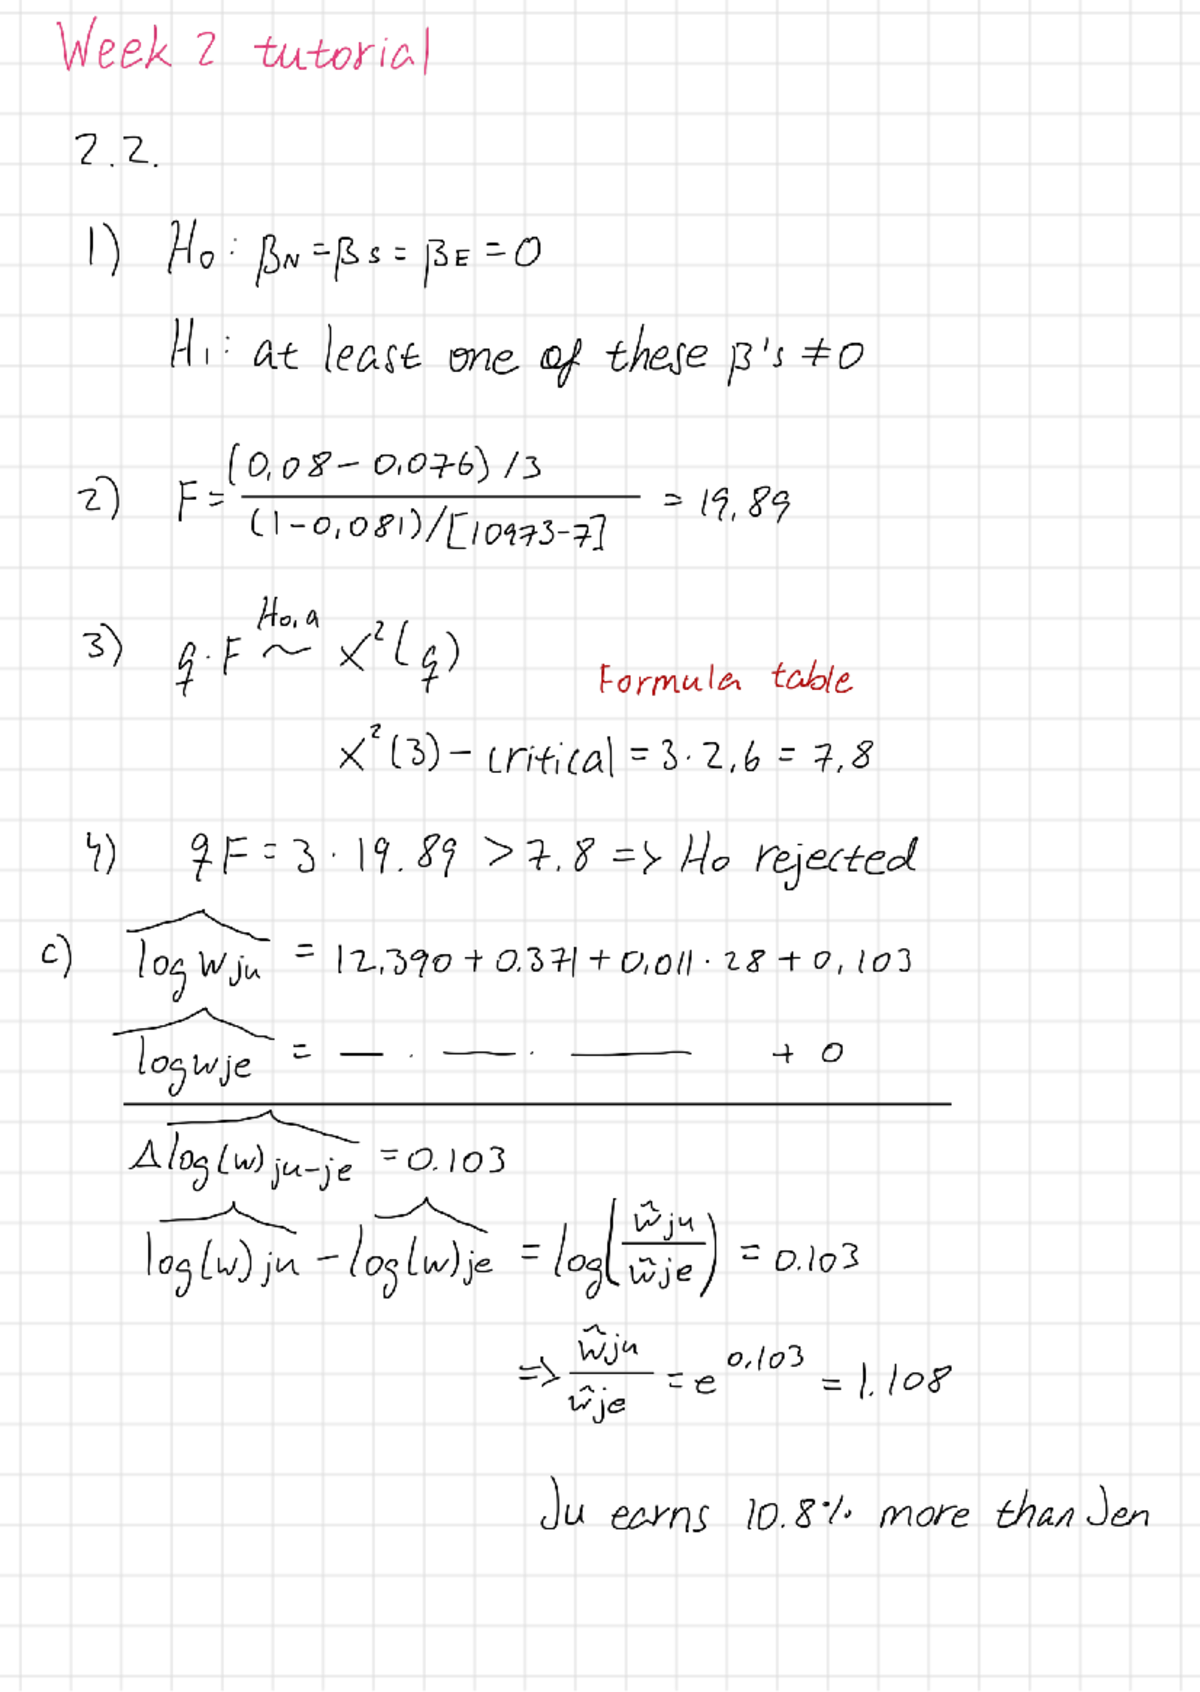 Week 2 tutorial
2.2.
1) H₀: βN = βS = βE = 0
H₁: at least one of these β's ≠ 0
2) F = (0,08 - 0,076) / 3 / (1-0,081)/[10973-7] = 19,89
3) q·F ~ᴴ⁰,ᵃ X²(q)
Formula table
X²(3) - critical = 3·2,6 = 7,8
4) qF = 3·19.89 > 7.8 => H₀ rejected
c) \widehat{log w ju} = 12,390 + 0.371 + 0,011·28 + 0,103
\widehat{log w je} = — . — . — + 0
Δ\widehat{log(w)} ju-je = 0.103
\widehat{log(w)} ju - \widehat{log(w)} je = log(ŵju / ŵje) = 0.103
=> ŵju / ŵje = e^0,103 = 1.108
Ju earns 10.8% more than Jen